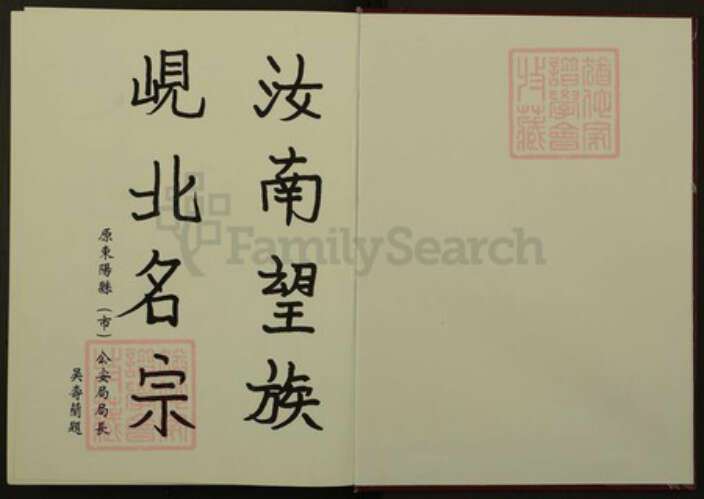 汝南望族
峴北名宗
原東陽縣（市）公安局局長
吳壽蘭題
FamilySearch